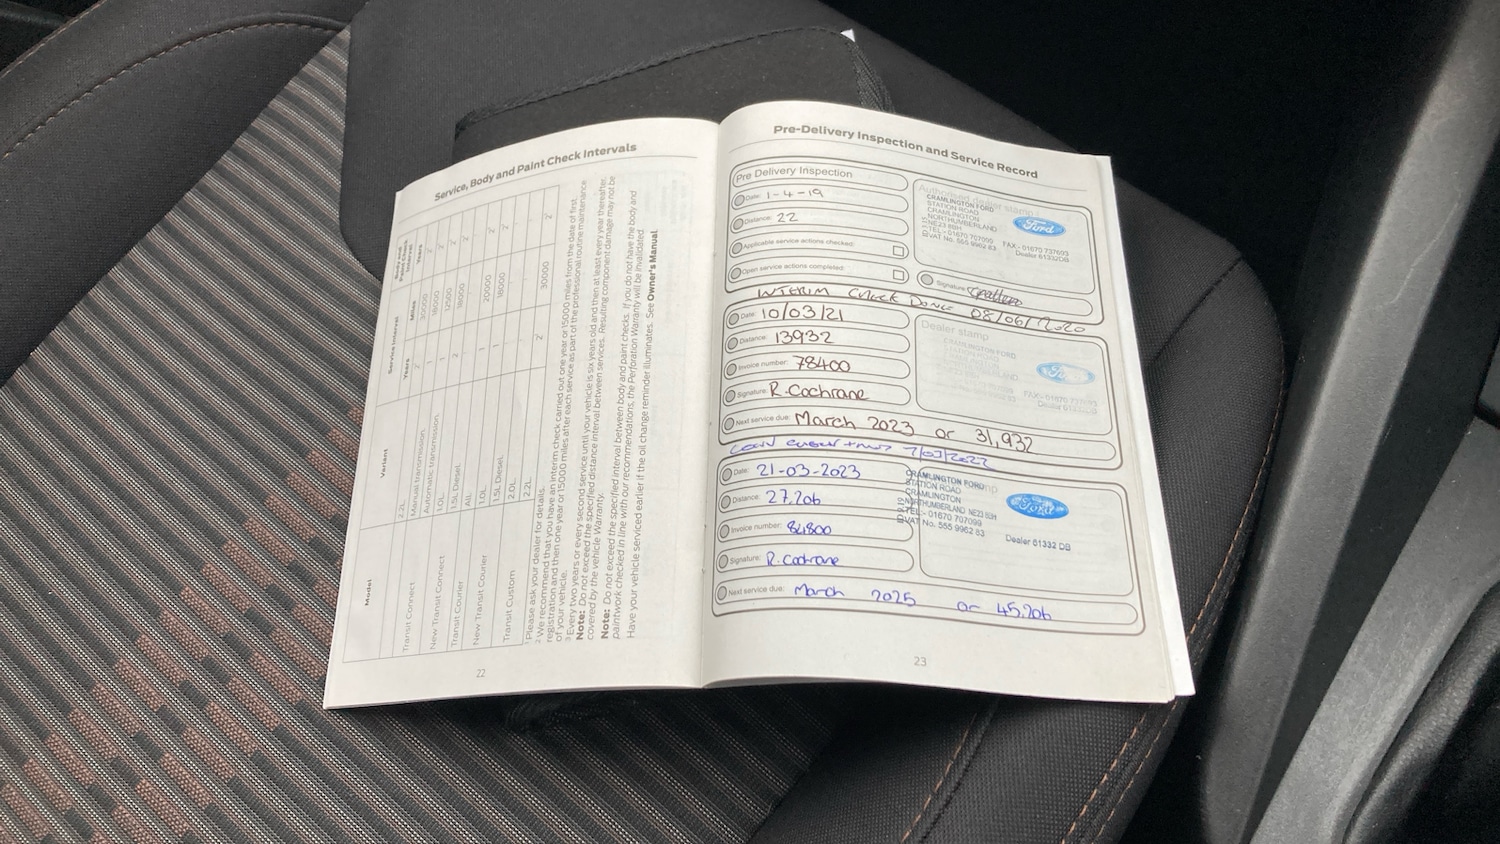 Service, Body and Paint Check Intervals
Model
Variant
Service Interval
Body and Paint Check Interval
Years
Miles
Years
Transit Connect
2.2L
Manual transmission.
Automatic transmission.
New Transit Connect
1.0L
1.5L Diesel.
Transit Courier
All.
New Transit Courier
1.0L
1.5L Diesel.
Transit Custom
2.0L
2.2L
Please ask your dealer for details.
We recommend that you have an interim check carried out one year or 15000 miles from the date of first
registration and then one year or 15000 miles after each service as part of the professional routine maintenance
of your vehicle.
Every two years or every second service until your vehicle is six years old and then at least every year thereafter.
Note: Do not exceed the specified distance interval between services. Resulting component damage may not be
covered by the vehicle Warranty.
Note: Do not exceed the specified interval between body and paint checks. If you do not have the body and
paintwork checked in line with our recommendations, the Perforation Warranty will be invalidated.
Have your vehicle serviced earlier if the oil change reminder illuminates. See Owner's Manual.
22
Pre-Delivery Inspection and Service Record
Pre Delivery Inspection
Date: 1-4-19
Distance: 22
Applicable service actions checked:
Open service actions completed:
Authorised dealer stamp
CRAMLINGTON FORD
STATION ROAD
CRAMLINGTON
NORTHUMBERLAND
NE23 8BH
TEL:- 01670 707099
VAT No. 555 9962 83
Ford
FAX:- 01670 737693
Dealer 61332DB
Signature:
INTERIM CHECK DONE 08/06/2020
Date: 10/03/21
Distance: 13932
Invoice number: 78400
Signature: R. Cochrane
Next service due: March 2023 or 31,932
Dealer stamp
CRAMLINGTON FORD
STATION ROAD
CRAMLINGTON
Ford
FAX:- 01670 737693
Dealer 61332DB
Date: 21-03-2023
Distance: 27,206
Invoice number: 84800
Signature: R. Cochrane
Next service due: March 2025 or 45,206
CRAMLINGTON FORD
STATION ROAD
CRAMLINGTON
NORTHUMBERLAND NE23 8BH
TEL:- 01670 707099
VAT No. 555 9962 83
Ford
Dealer 61332 DB
23